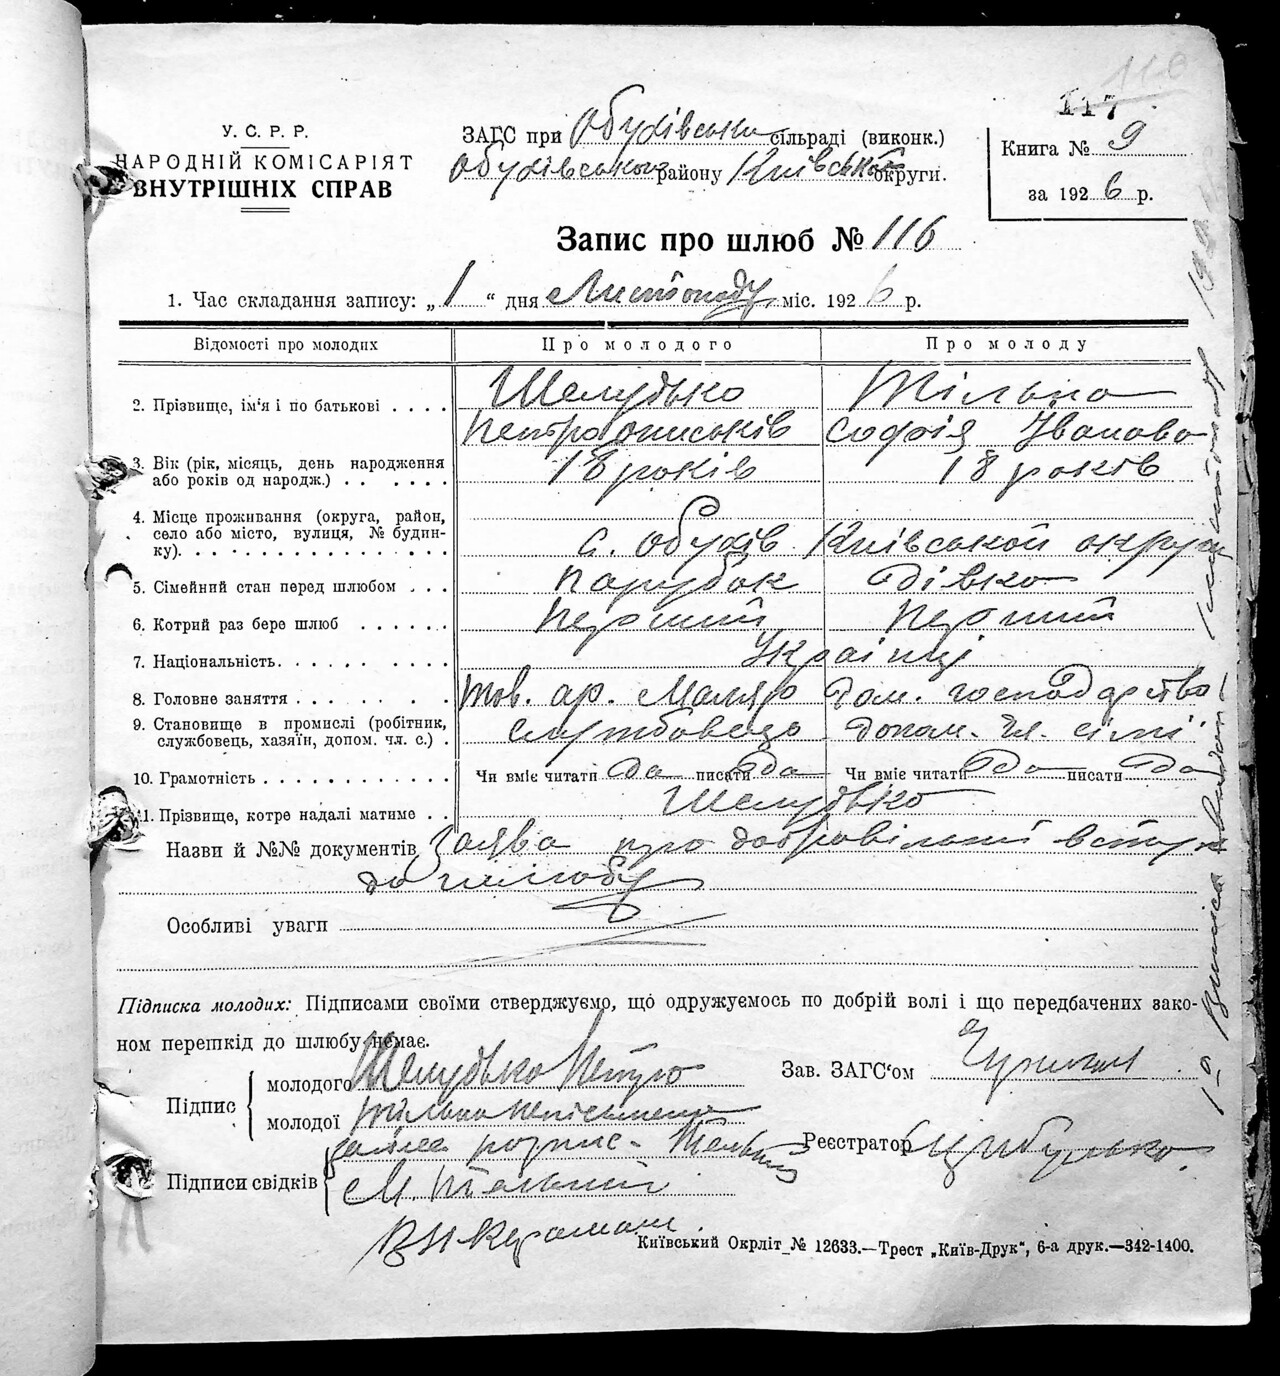 117
У. С. Р. Р.
НАРОДНІЙ КОМІСАРІЯТ
ВНУТРІШНІХ СПРАВ
ЗАГС при Обухівська сільраді (виконк.)
Обухівського району Київської округи.
Книга № 9
за 1926 р.
Запис про шлюб № 116
1. Час складання запису: „1“ дня Листопаду міс. 1926 р.
Відомості про молодих Про молодого Про молоду
2. Прізвище, ім'я і по батькові . . . . Шелудько Тільна
Петро Софія Іванова
3. Вік (рік, місяць, день народження 18 років 18 років
або років од народж.) . . . . . .
4. Місце проживання (округа, район,
село або місто, вулиця, № будин- с. Обухів Київської округи
ку). . . . . . . . . . . . . . .
5. Сімейний стан перед шлюбом . . . Парубок дівка
6. Котрий раз бере шлюб . . . . . . Перший Перший
7. Національність. . . . . . . . . . Українці
8. Головне заняття . . . . . . . . дом. господарство
9. Становище в промислі (робітник, службовець допом. чл. сімї
службовець, хазяїн, допом. чл. с.) .
10. Грамотність . . . . . . . . . . . . Чи вміє читати да писати да Чи вміє читати да писати да
11. Прізвище, котре надалі матиме . . Шелудько
Назви й №№ документів Заява про добровільний вступ
до шлюбу
Особливі уваги
Підписка молодих: Підписами своїми стверджуємо, що одружуємось по добрій волі і що передбачених зако-
ном перешкід до шлюбу немає.
Підпис молодого Шелудько Петро
молодої Тільна неписьмена
Зав. ЗАГС'ом
Реєстратор Цибулько
Підписи свідків
М. Тельний
Київський Окрліт № 12633.—Трест „Київ-Друк“, 6-а друк.—342-1400.